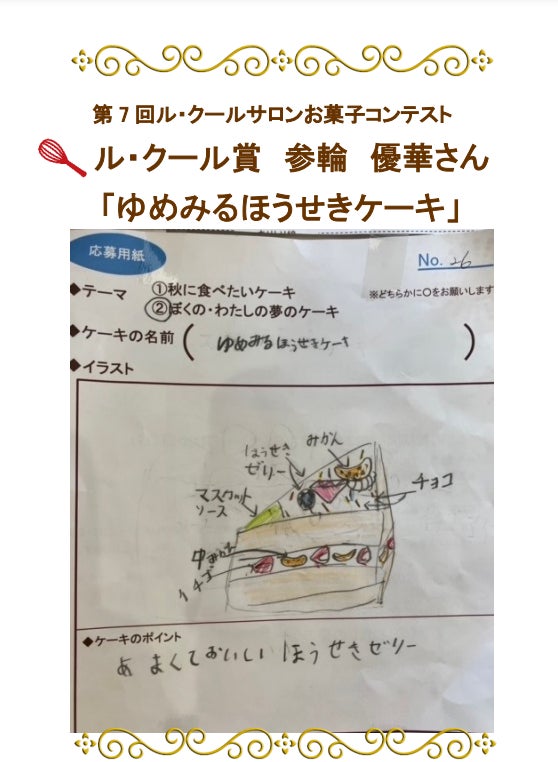 第7回ル・クールサロンお菓子コンテスト
ル・クール賞　参輪　優華さん
「ゆめみるほうせきケーキ」
応募用紙
No. 26
◆テーマ　①秋に食べたいケーキ
※どちらかに○をお願いします
②ぼくの・わたしの夢のケーキ
◆ケーキの名前（ゆめみるほうせきケーキ）
◆イラスト
みかん
ほうせき
ゼリー
チョコ
マスカット
ソース
みかん
イチゴ
◆ケーキのポイント
あまくておいしいほうせきゼリー